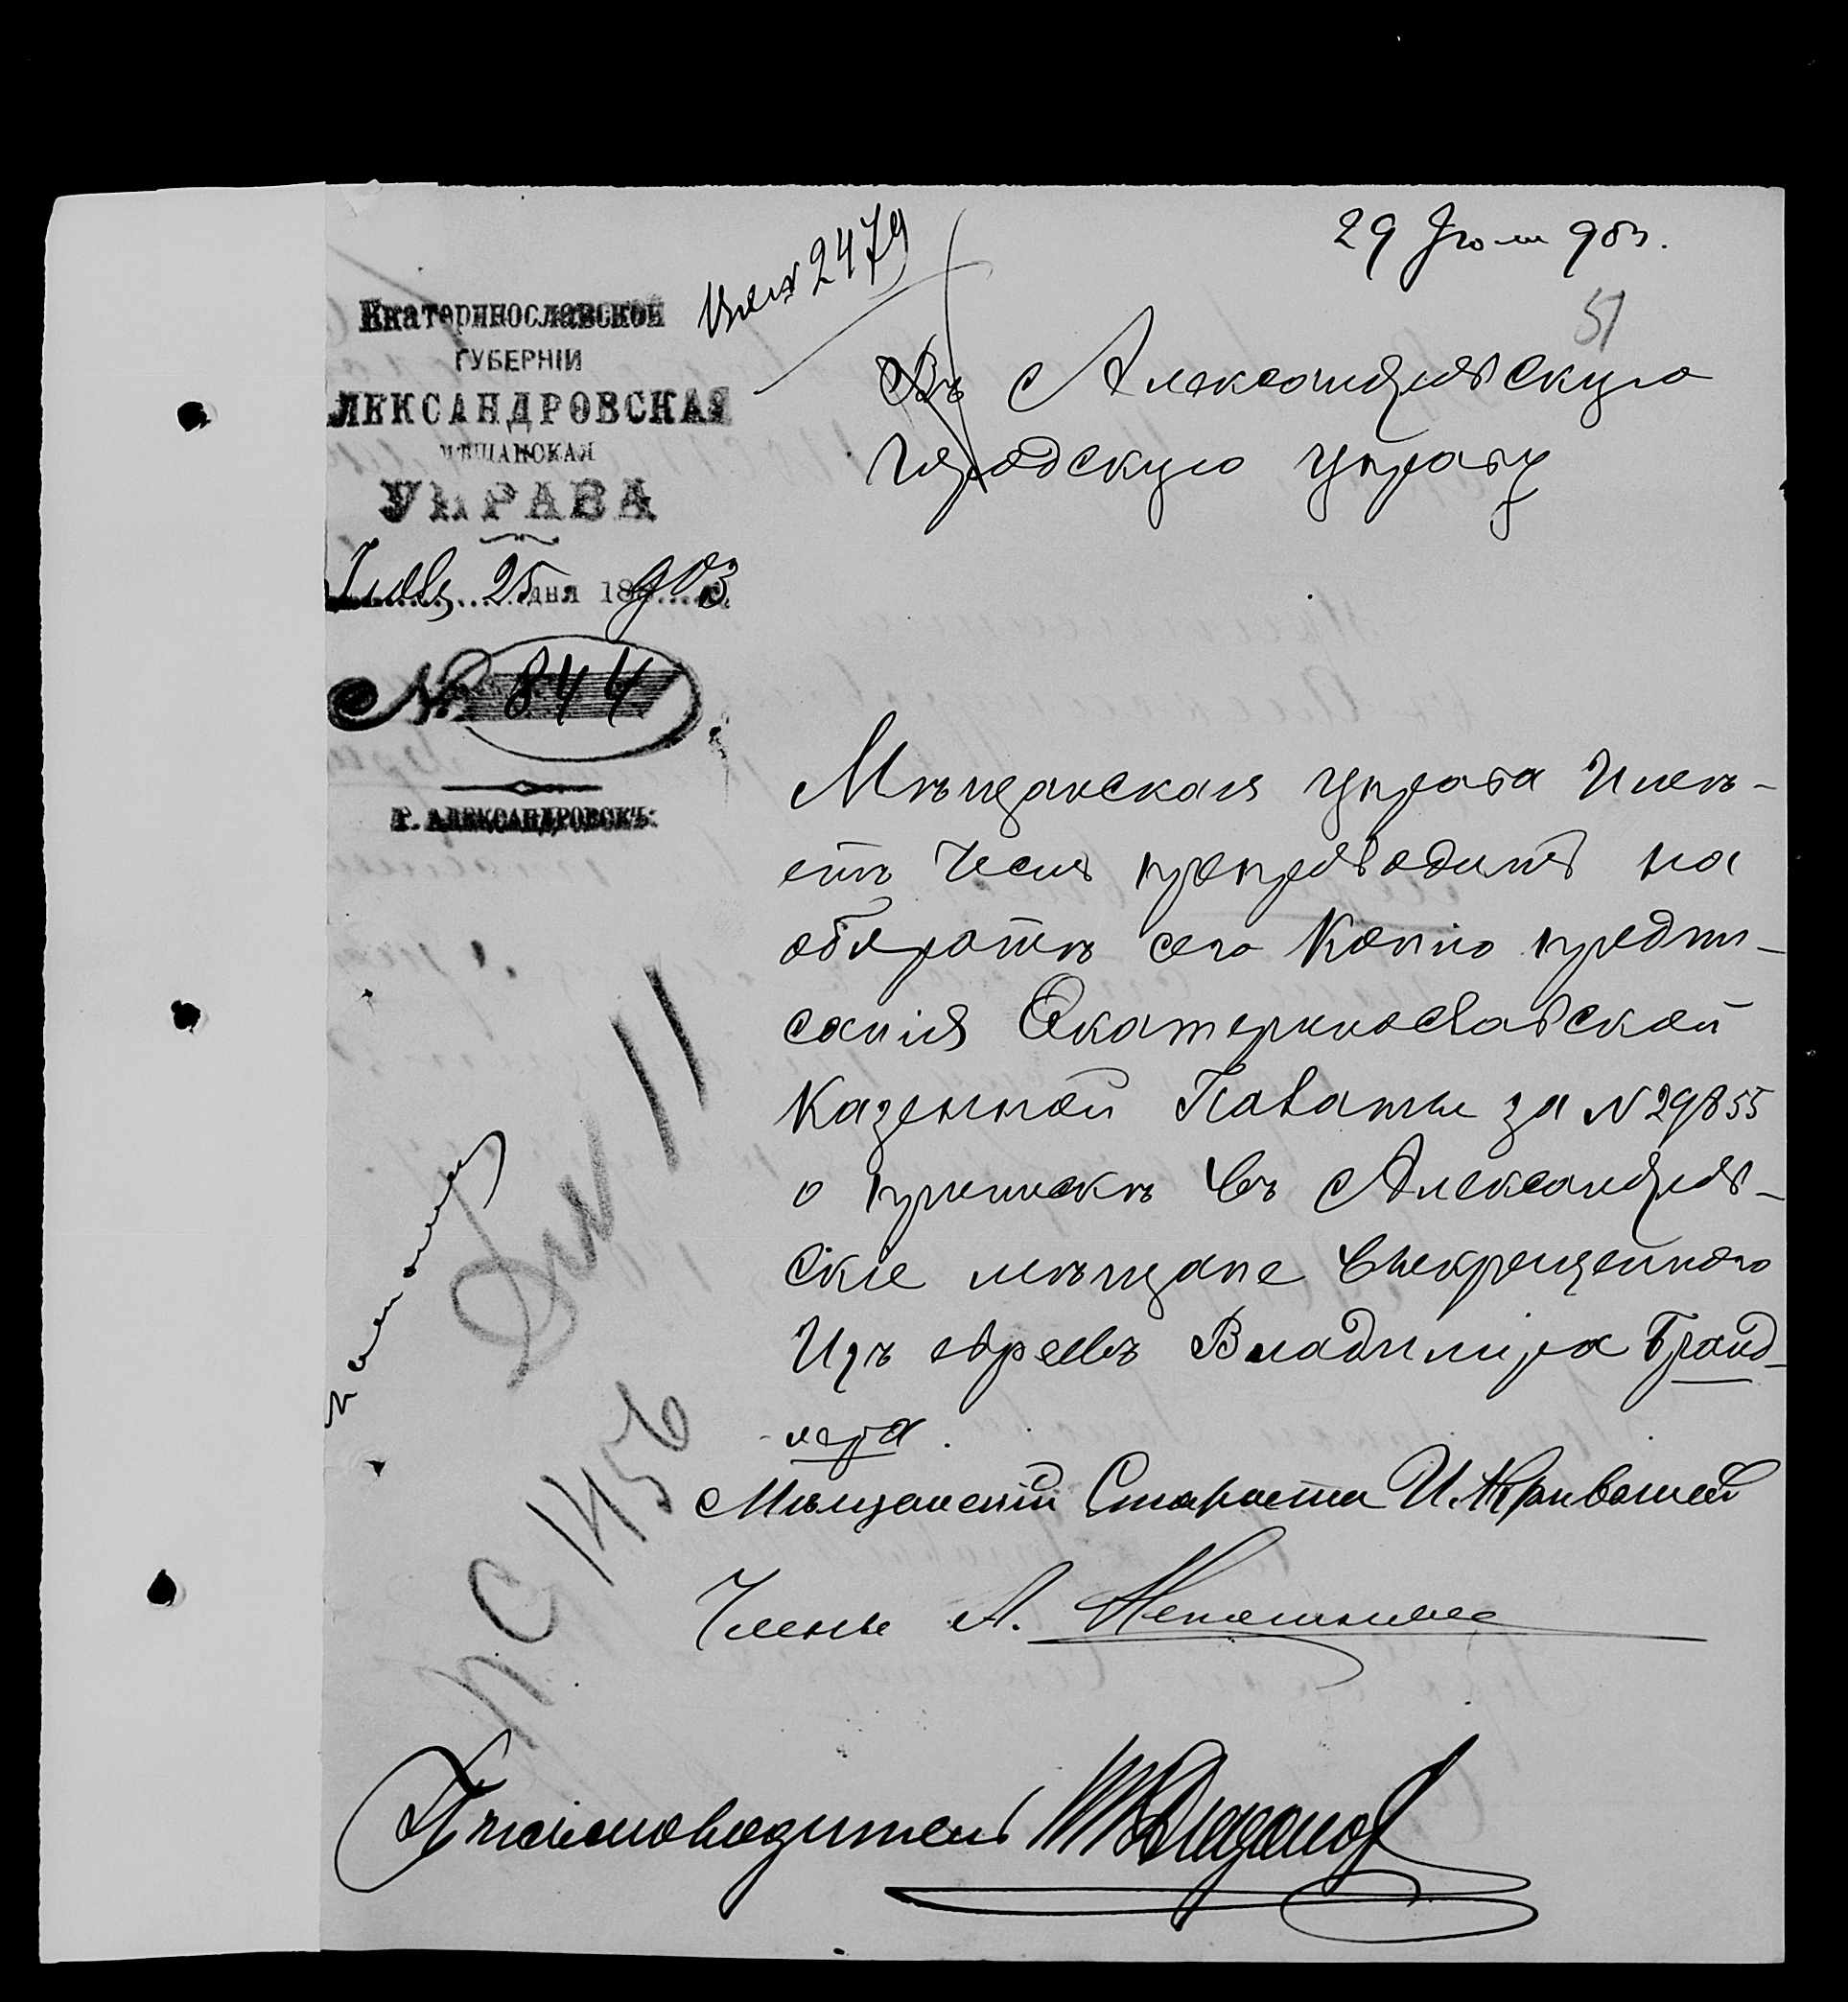 29 Июля 903.
Вход 2479
51
Екатеринославской
ГУБЕРНІИ
АЛЕКСАНДРОВСКАЯ
МѢЩАНСКАЯ
УПРАВА
Іюля 25 дня 1903 г.
№ 844
Г. АЛЕКСАНДРОВСКЪ.
Въ Александровскую
Городскую управу
Мѣщанская управа Имѣ-
етъ честь препроводить на
оборотѣ сего Копію предпи-
санія Екатеринославской
Казенной Палаты за № 29855
о припискѣ въ Александров-
скіе мѣщане выкрещенного
Изъ евреевъ Владиміра Бранд-
лера.
Мѣщанскій Староста И.
Члены А.
Письмоводитель